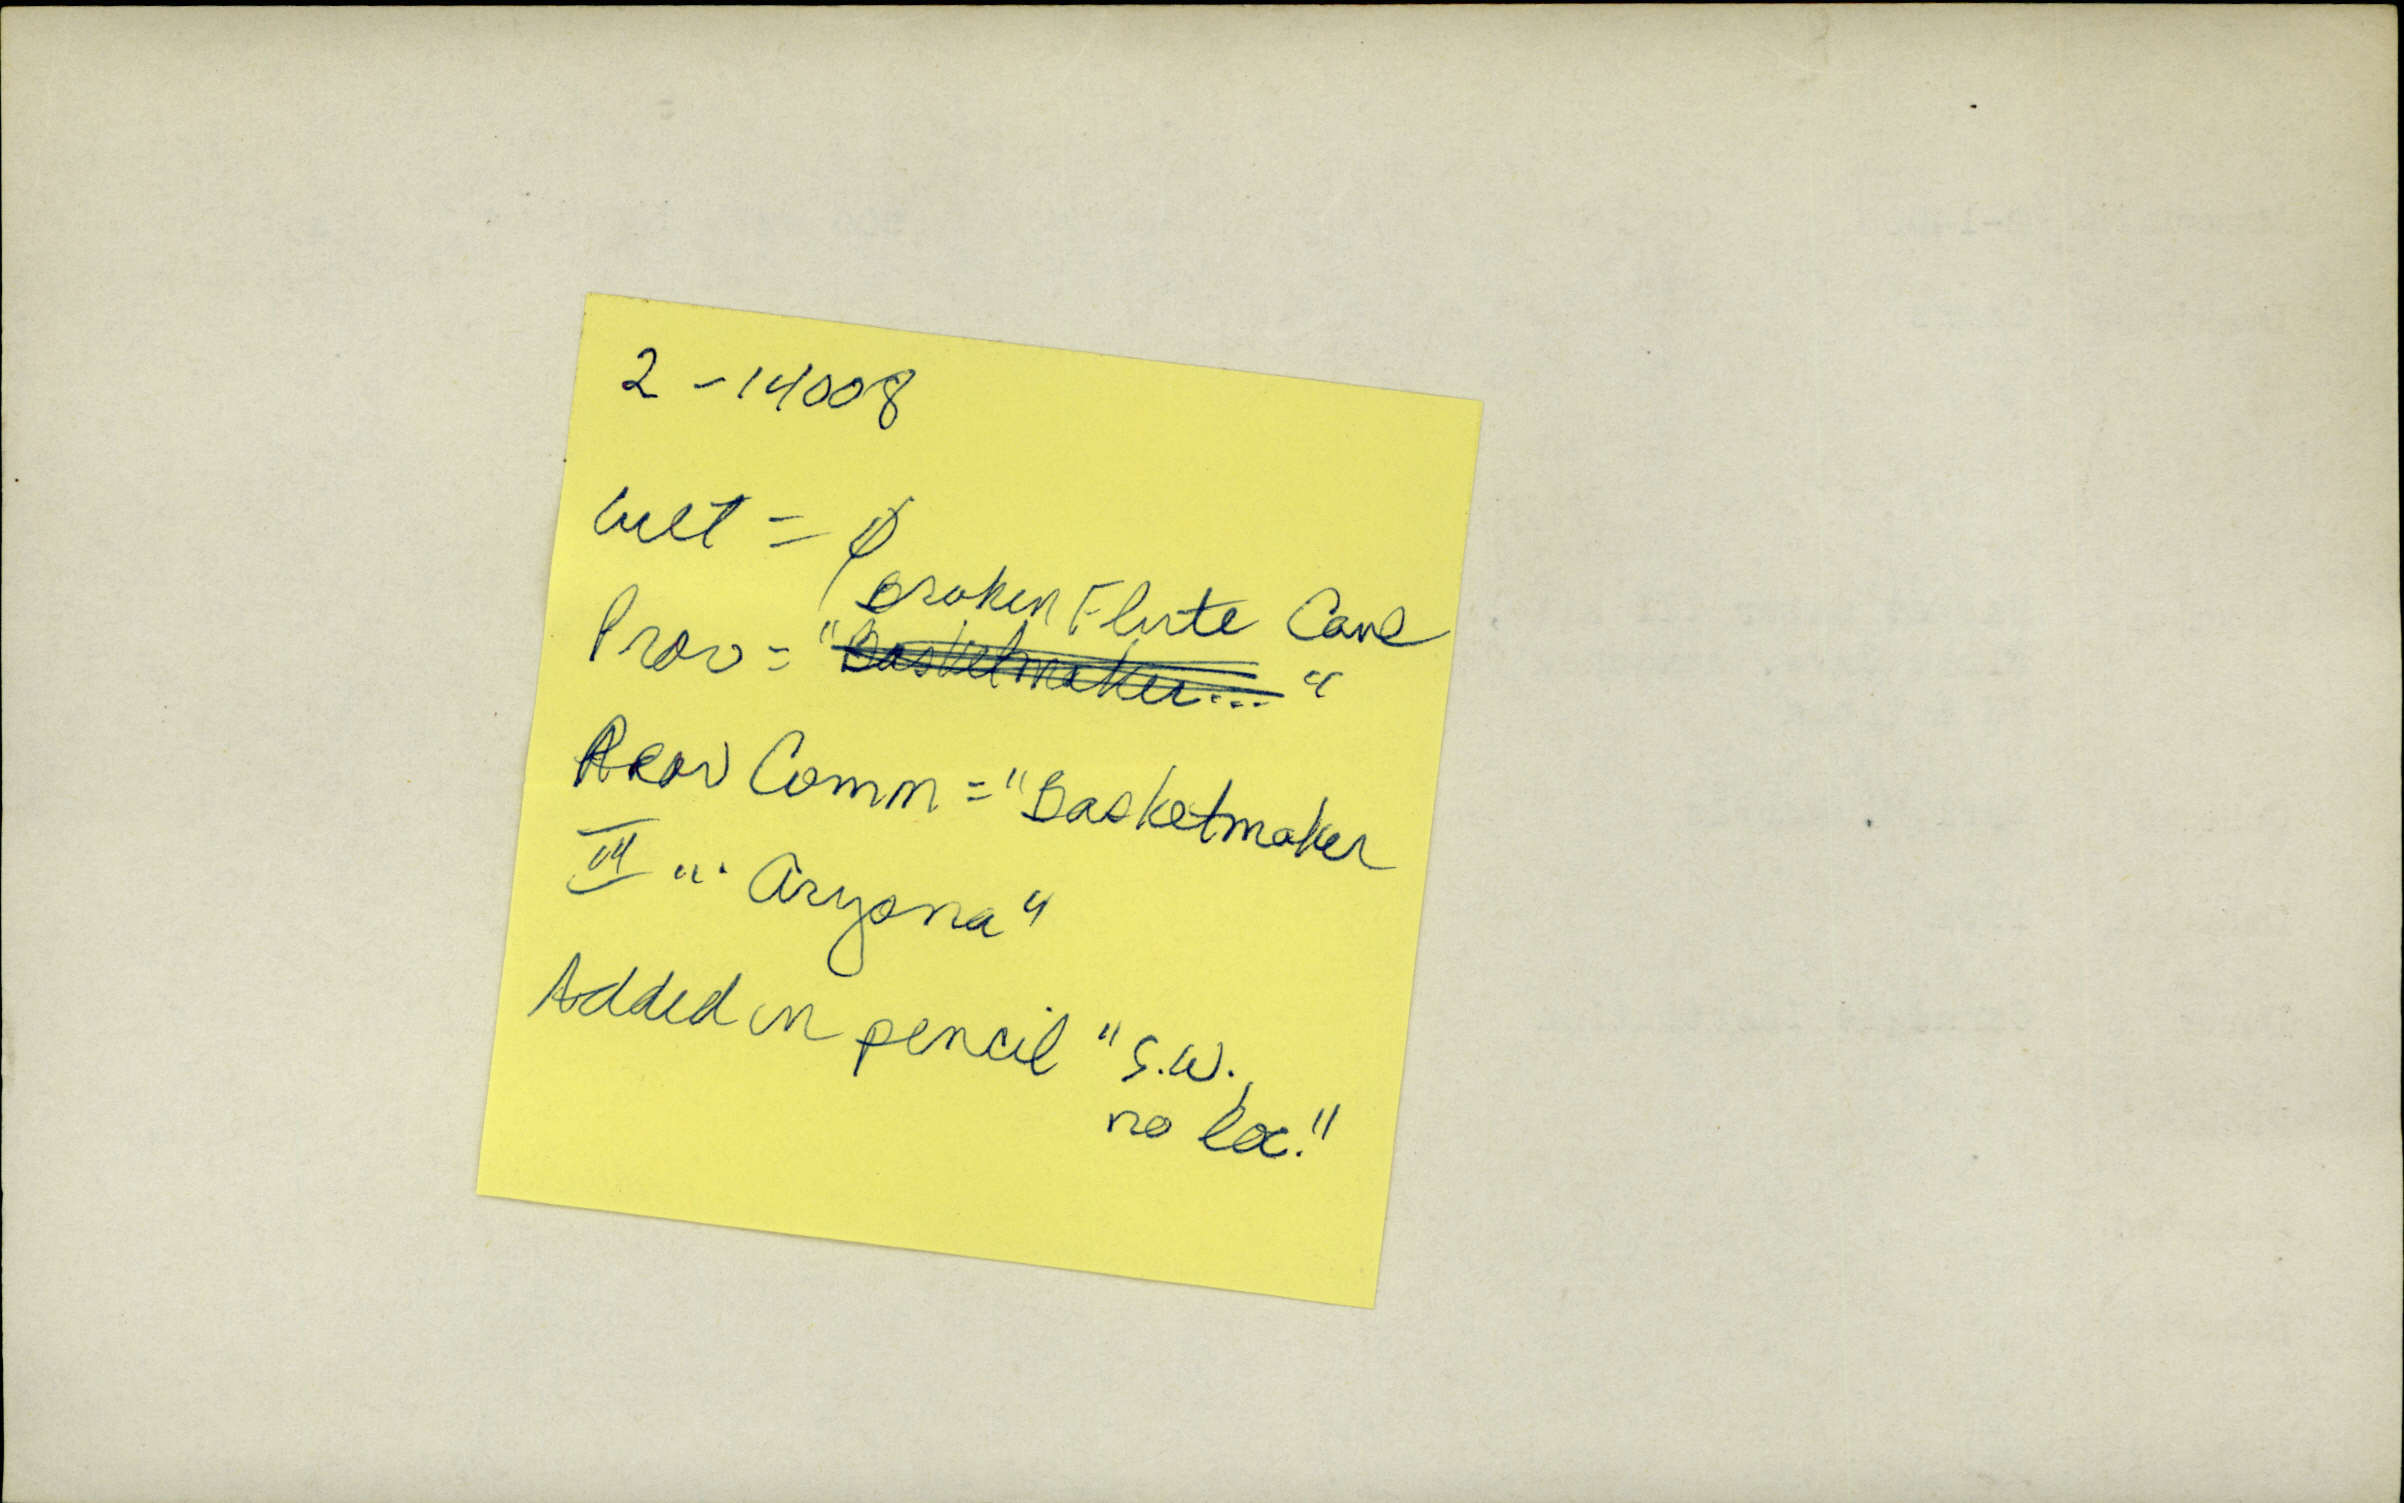 2-14008
Cult = ∅
Broken Flute Cave
Prov = "Basketmaker..."
Prov Comm = "Basketmaker
III ... Arizona"
Added in pencil "S.W.,
no loc."